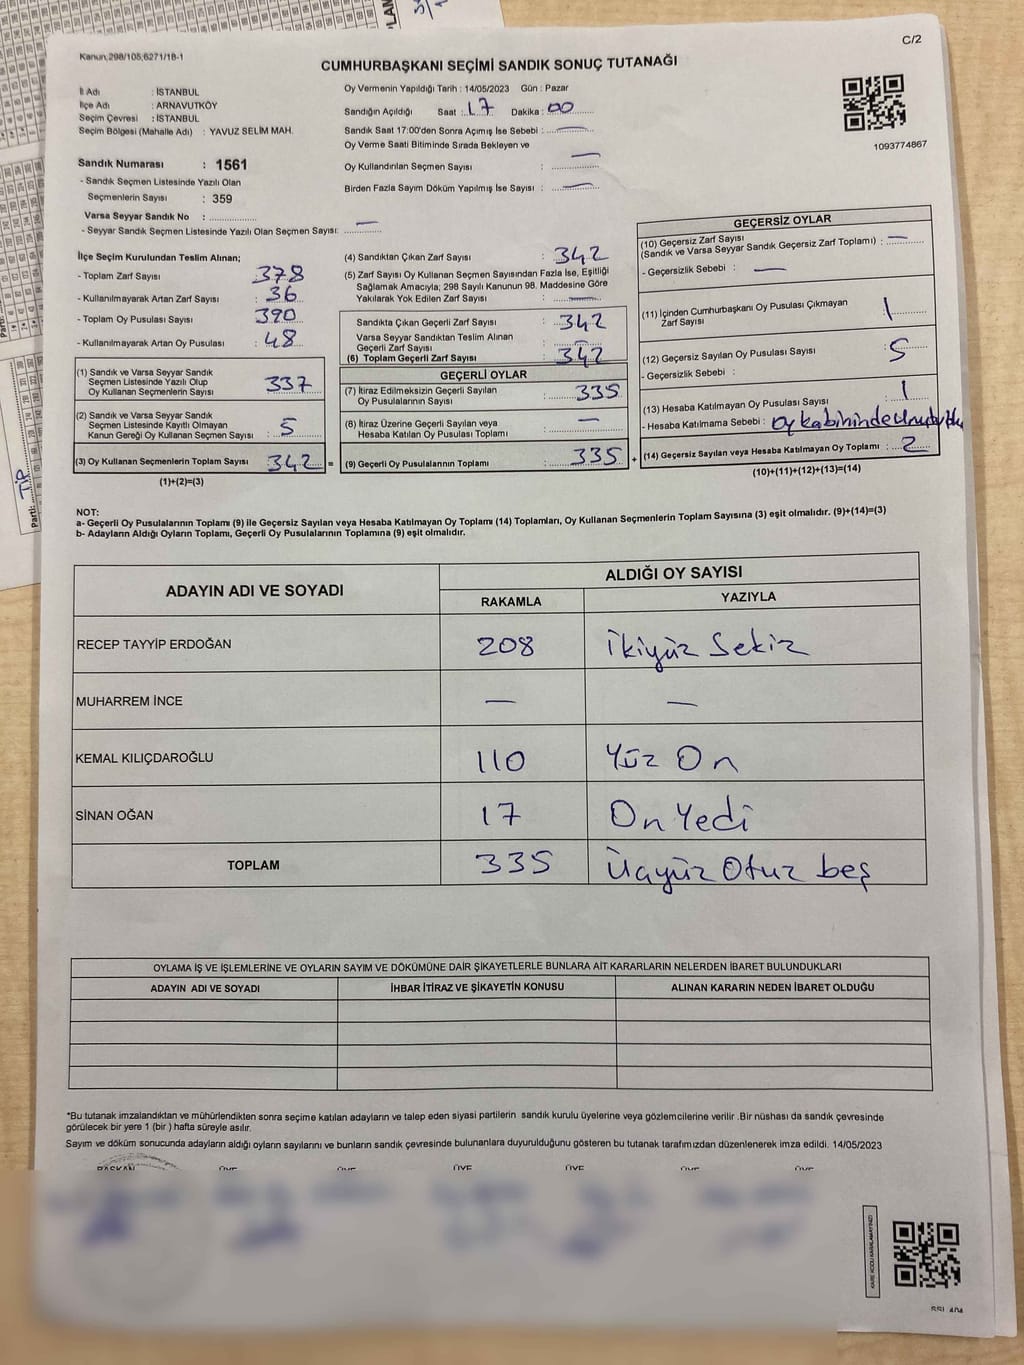 Kanun,298/105,6271/18-1
C/2
CUMHURBAŞKANI SEÇİMİ SANDIK SONUÇ TUTANAĞI
İl Adı : İSTANBUL
İlçe Adı : ARNAVUTKÖY
Seçim Çevresi : İSTANBUL
Seçim Bölgesi (Mahalle Adı) : YAVUZ SELİM MAH.
Oy Vermenin Yapıldığı Tarih : 14/05/2023 Gün : Pazar
Sandığın Açıldığı Saat : 17 Dakika : 00
Sandık Saat 17:00'den Sonra Açımış İse Sebebi : —
Oy Verme Saati Bitiminde Sırada Bekleyen ve
Oy Kullandırılan Seçmen Sayısı : —
Birden Fazla Sayım Döküm Yapılmış İse Sayısı : —
1093774867
Sandık Numarası : 1561
- Sandık Seçmen Listesinde Yazılı Olan
Seçmenlerin Sayısı : 359
Varsa Seyyar Sandık No :
- Seyyar Sandık Seçmen Listesinde Yazılı Olan Seçmen Sayısı: —
İlçe Seçim Kurulundan Teslim Alınan;
- Toplam Zarf Sayısı : 378
- Kullanılmayarak Artan Zarf Sayısı : 36
- Toplam Oy Pusulası Sayısı : 390
- Kullanılmayarak Artan Oy Pusulası : 48
(1) Sandık ve Varsa Seyyar Sandık
Seçmen Listesinde Yazılı Olup
Oy Kullanan Seçmenlerin Sayısı : 337
(2) Sandık ve Varsa Seyyar Sandık
Seçmen Listesinde Kayıtlı Olmayan
Kanun Gereği Oy Kullanan Seçmen Sayısı : 5
(3) Oy Kullanan Seçmenlerin Toplam Sayısı 342 =
(1)+(2)=(3)
(4) Sandıktan Çıkan Zarf Sayısı : 342
(5) Zarf Sayısı Oy Kullanan Seçmen Sayısından Fazla İse, Eşitliği
Sağlamak Amacıyla; 298 Sayılı Kanunun 98. Maddesine Göre
Yakılarak Yok Edilen Zarf Sayısı : —
Sandıkta Çıkan Geçerli Zarf Sayısı : 342
Varsa Seyyar Sandıktan Teslim Alınan
Geçerli Zarf Sayısı :
(6) Toplam Geçerli Zarf Sayısı : 342
GEÇERLİ OYLAR
(7) İtiraz Edilmeksizin Geçerli Sayılan
Oy Pusulalarının Sayısı : 335
(8) İtiraz Üzerine Geçerli Sayılan veya
Hesaba Katılan Oy Pusulası Toplamı : —
(9) Geçerli Oy Pusulalarının Toplamı : 335 +
GEÇERSİZ OYLAR
(10) Geçersiz Zarf Sayısı
(Sandık ve Varsa Seyyar Sandık Geçersiz Zarf Toplamı) : —
- Geçersizlik Sebebi : —
(11) İçinden Cumhurbaşkanı Oy Pusulası Çıkmayan
Zarf Sayısı : 1
(12) Geçersiz Sayılan Oy Pusulası Sayısı : 5
- Geçersizlik Sebebi :
(13) Hesaba Katılmayan Oy Pusulası Sayısı : 1
- Hesaba Katılmama Sebebi : Oy kabininde
(14) Geçersiz Sayılan veya Hesaba Katılmayan Oy Toplamı : 2
(10)+(11)+(12)+(13)=(14)
NOT:
a- Geçerli Oy Pusulalarının Toplamı (9) ile Geçersiz Sayılan veya Hesaba Katılmayan Oy Toplamı (14) Toplamları, Oy Kullanan Seçmenlerin Toplam Sayısına (3) eşit olmalıdır. (9)+(14)=(3)
b- Adayların Aldığı Oyların Toplamı, Geçerli Oy Pusulalarının Toplamına (9) eşit olmalıdır.
ADAYIN ADI VE SOYADI
ALDIĞI OY SAYISI
RAKAMLA YAZIYLA
RECEP TAYYİP ERDOĞAN 208 İkiyüz Sekiz
MUHARREM İNCE — —
KEMAL KILIÇDAROĞLU 110 Yüz On
SİNAN OĞAN 17 On Yedi
TOPLAM 335 Üçyüz Otuz beş
OYLAMA İŞ VE İŞLEMLERİNE VE OYLARIN SAYIM VE DÖKÜMÜNE DAİR ŞİKAYETLERLE BUNLARA AİT KARARLARIN NELERDEN İBARET BULUNDUKLARI
ADAYIN ADI VE SOYADI İHBAR İTİRAZ VE ŞİKAYETİN KONUSU ALINAN KARARIN NEDEN İBARET OLDUĞU
*Bu tutanak imzalandıktan ve mühürlendikten sonra seçime katılan adayların ve talep eden siyasi partilerin sandık kurulu üyelerine veya gözlemcilerine verilir .Bir nüshası da sandık çevresinde
görülecek bir yere 1 (bir ) hafta süreyle asılır.
Sayım ve döküm sonucunda adayların aldığı oyların sayılarını ve bunların sandık çevresinde bulunanlara duyurulduğunu gösteren bu tutanak tarafımızdan düzenlenerek imza edildi. 14/05/2023
BAŞKAN ÜYE ÜYE ÜYE ÜYE ÜYE ÜYE
Parti: TİP